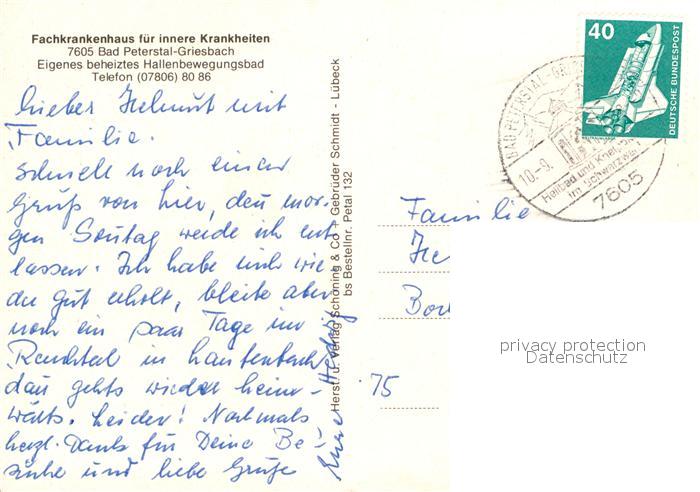 Fachkrankenhaus für innere Krankheiten
7605 Bad Peterstal-Griesbach
Eigenes beheiztes Hallenbewegungsbad
Telefon (07806) 80 86
Lieber Helmut mit
Familie.
Schnell noch einen
Gruß von hier, den mor-
gen Sontag werde ich ent-
lassen. Ich habe mich wie-
der gut erholt, bleibe aber
noch ein paar Tage im
Renchtal in Lautenbach
dan gehts wieder heim-
wärts. Leider! Nochmals
herzl. Dank für Deine Be-
suche und liebe Grüße
Eure Hedwig
Herst. u. Verlag Schöning & Co + Gebrüder Schmidt - Lübeck
bs Bestellnr. Petal 132
40
DEUTSCHE BUNDESPOST
BAD PETERSTAL-GRIESBACH
10.-9.
Heilbad und Kneipp
im Schwarzwald
7605
Familie
He
Bo
75
privacy protection
Datenschutz